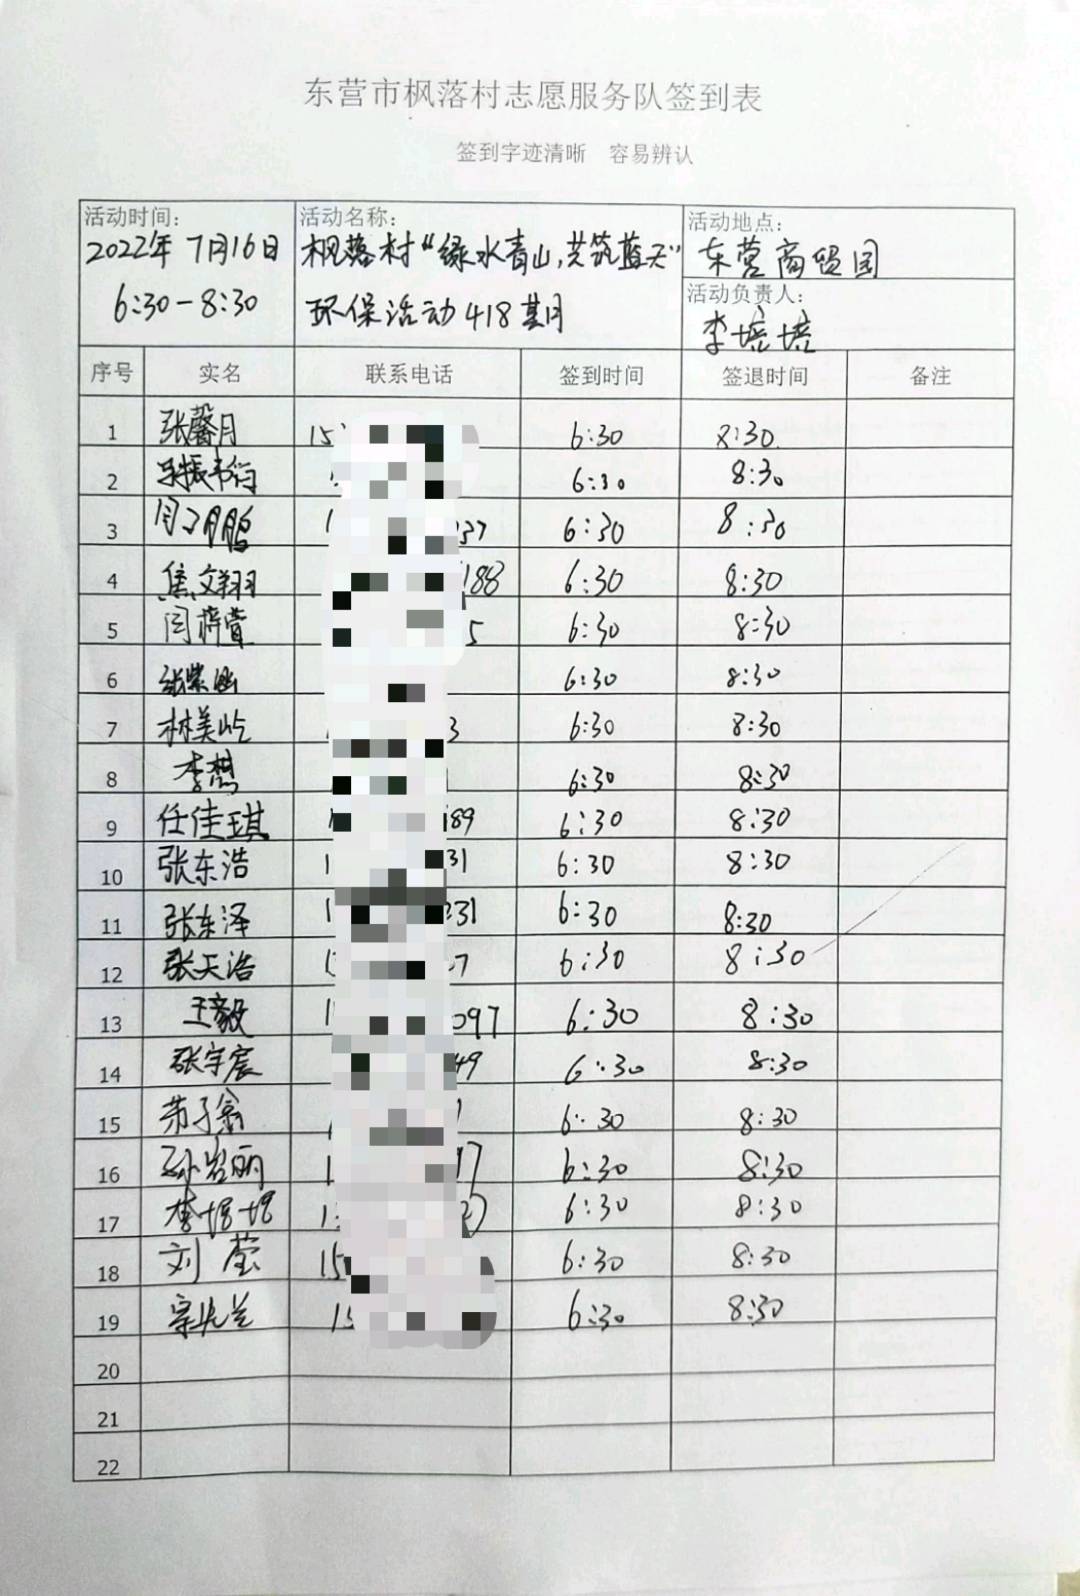 东营市枫落村志愿服务队签到表
签到字迹清晰 容易辨认
活动时间：
2022年7月16日
6:30-8:30
活动名称：
枫落村“绿水青山,共筑蓝天”
环保活动418期
活动地点：
东营商贸园
活动负责人：
李培培
序号 实名 联系电话 签到时间 签退时间 备注
1 张馨月 15 6:30 8:30
2 6:30 8:30
3 1 37 6:30 8:30
4 焦文翔 188 6:30 8:30
5 闫梓萱 5 6:30 8:30
6 张紫涵 6:30 8:30
7 林美屹 3 6:30 8:30
8 李想 6:30 8:30
9 任佳琪 189 6:30 8:30
10 张东浩 1 31 6:30 8:30
11 张东泽 1 231 6:30 8:30
12 张天浩 7 6:30 8:30
13 王毅 1 097 6:30 8:30
14 张宇宸 1 49 6:30 8:30
15 6:30 8:30
16 孙岩丽 1 17 6:30 8:30
17 李培培 1 6:30 8:30
18 刘莹 15 6:30 8:30
19 15 6:30 8:30
20
21
22